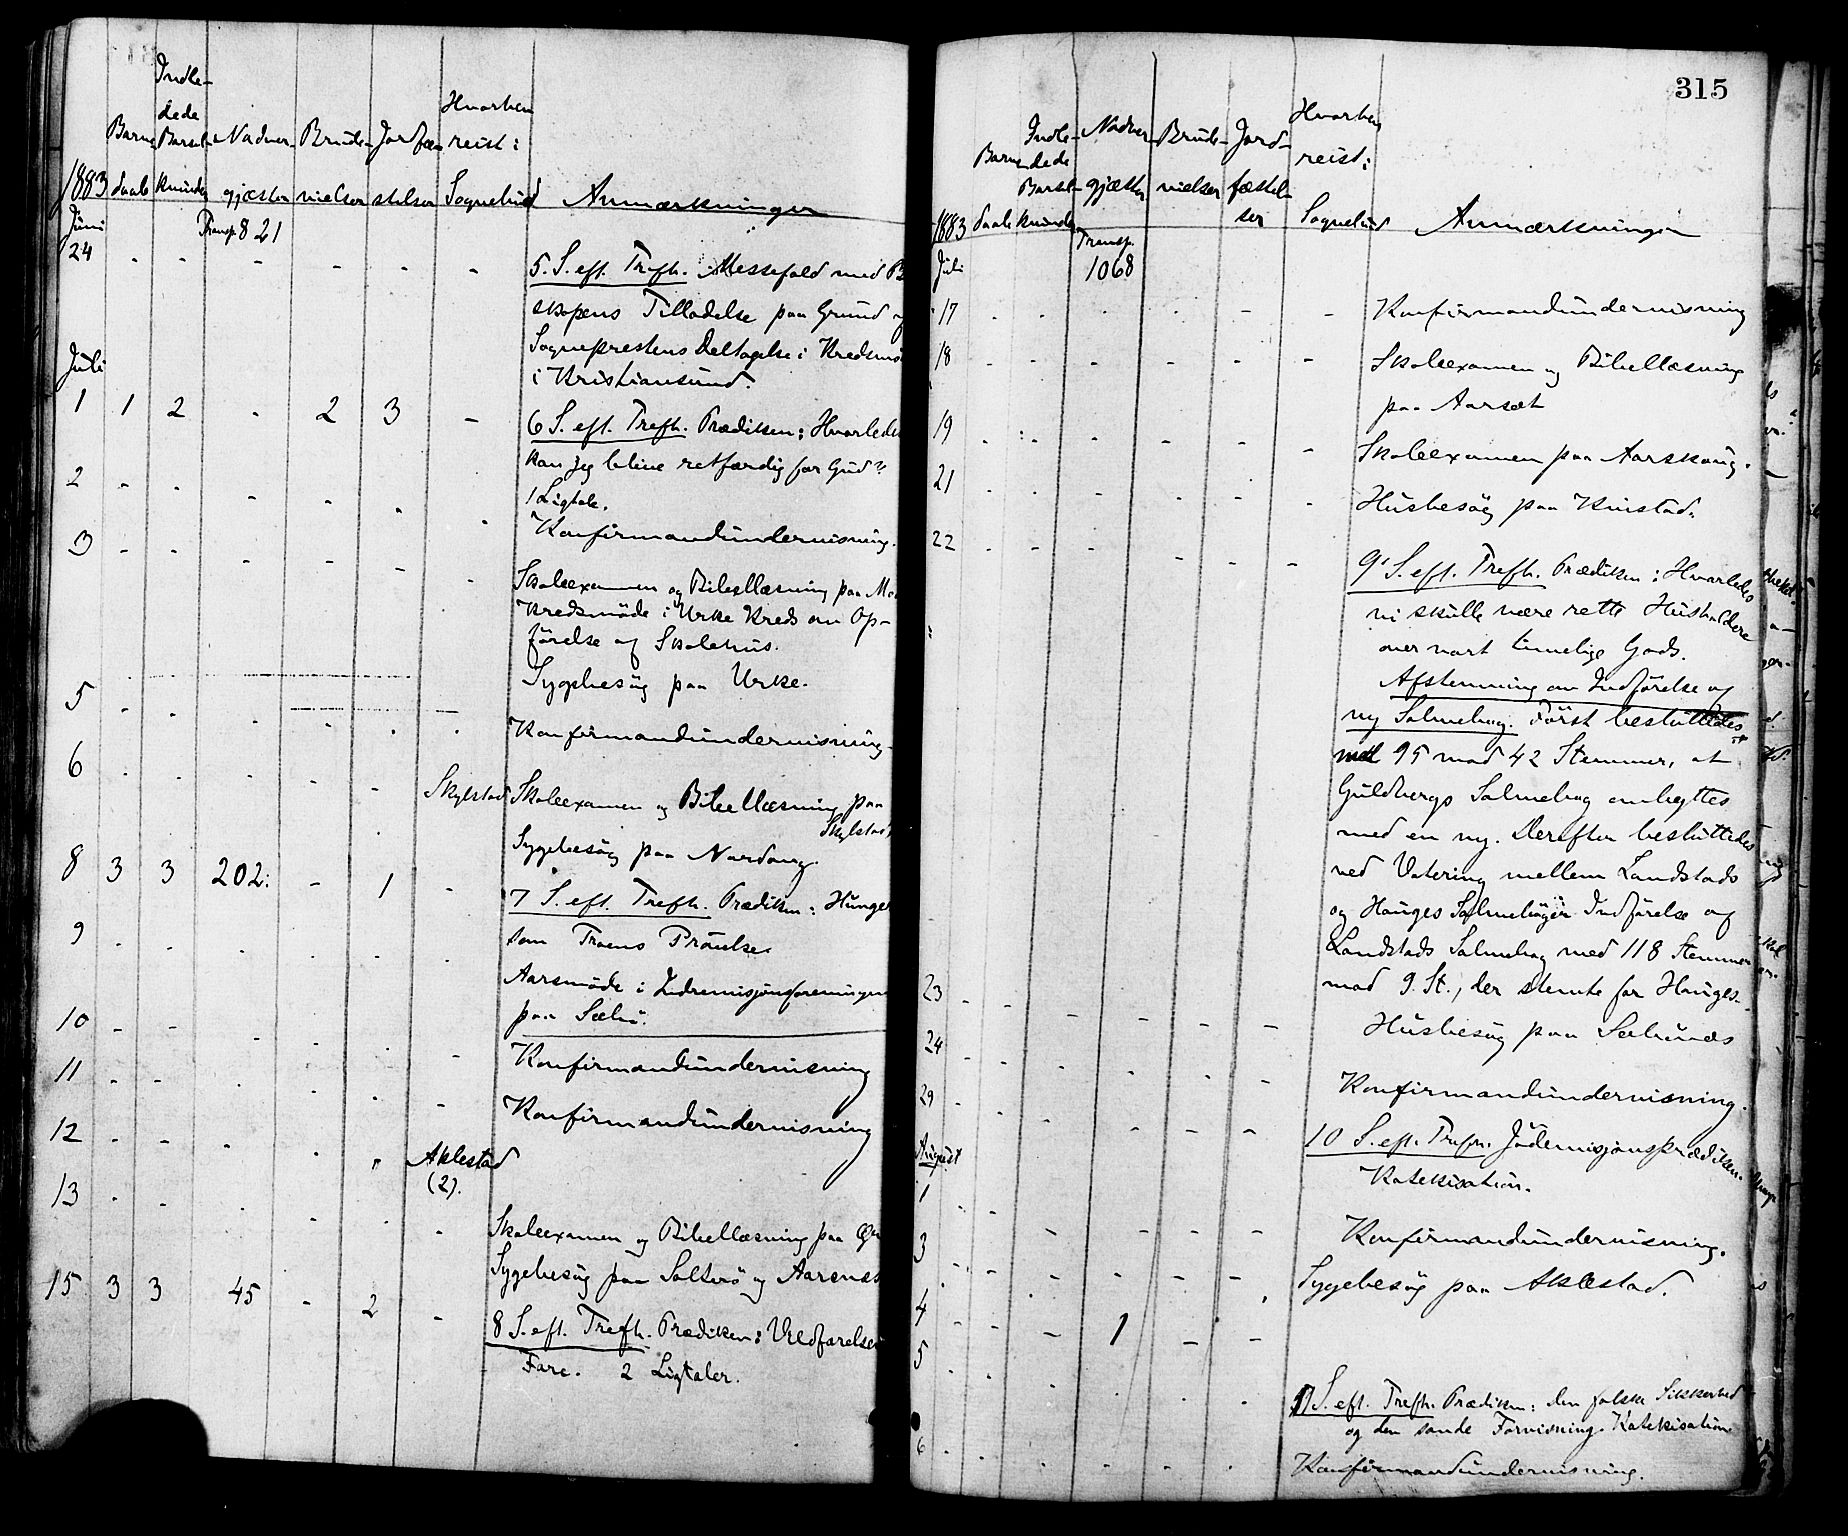 Indle-
dede
Barne Barsel- Nadver- Brude- Jordfæ- Hvorhen
reist:
1883 daab kvinder gjæster vielser stelser Sognebud Anmærkninger
Juni Transp. 821
24 - - - - - - 5. S. eft. Trefh. Messefald med
skopens Tilladelse paa Grund
Sogneprestens Deltagelse i Kredsmø
i Kristiansund.
Juli
1 1 2 - 2 3 - 6 S. eft. Trefh. Prædiken: Hvorledes
kan jeg blive retfærdig for Gud?
1 Ligtale.
2 - - - - - - Konfirmandundervisning.
3 - - - - - - Skoleexamen og Bibellæsning paa
Kredsmøde i Urke Kreds om Op-
førelse af Skolehus.
Sygebesøg paa Urke.
5 - - - - - - Konfirmandundervisning.
6 - - - - - Skylstad Skoleexamen og Bibellæsning paa
Skylstad
Sygebesøg paa Nordang.
8 3 3 202: - 1 - 7 S. eft. Trefh. Prædiken: Hunger
som Troens Prøvelse
9 - - - - - - Aarsmøde i Indremisjonsforeningen
paa Sæbø.
10 - - - - - - Konfirmandundervisning
11 - - - - - - Konfirmandundervisning
12 - - - - " Aklestad
(2).
13 - - - - - - Skoleexamen og Bibellæsning paa
Sygebesøg paa og Aarsnes
15 3 3 45 - 2 - 8 S. eft. Trefh. Prædiken: Vildfarelsens
Fare. 2 Ligtaler.
315
Indle- Nadver- Brude- Jord- Hvorhen
Barne- dede reist:
Barsel- gjæster vielser fæstel-
1883 daab kvinder ser Sognebud Anmærkninger
Juli Transp.
1068
17 - - - - - - Konfirmandundervisning
18 - - - - - - Skoleexamen og Bibellæsning
paa Aarsæt
19 - - - - - - Skoleexamen paa Aarskoug.
21 - - - - - - Husbesøg paa Kvistad.
22 - - - - - - 9' S. eft. Trefh. Prædiken: Hvorledes
vi skulle være rette Husholdere
over vort timelige Gods.
Afstemning om Indførelse af
ny Salmebog. Først besluttedes
med 95 mod 42 Stemmer, at
Guldbergs Salmebog ombyttes
med en ny. Derefter besluttedes
ved Votering mellem Landstads
og Hauges Salmebøger Indførelse af
Landstads Salmebog med 118 Stemmer
mod 9. St., der stemte for Hauges.
23 - - - - - - Husbesøg paa Sæbønes
24 - - - - - - Konfirmandundervisning.
29 - - - - - - 10 S. eft. Trefh. Jødemisjonsprædiken.
Katekisation.
August
1 - - - - Konfirmandundervisning.
3 - - - - - - Sygebesøg paa Aklestad.
4 - - - 1 - -
5 - - - - 11 S. eft. Trefh. Prædiken: den falske Sikkerhed
og den sande Forvisning. Katekisation
6 - - - - - - Konfirmandundervisning.